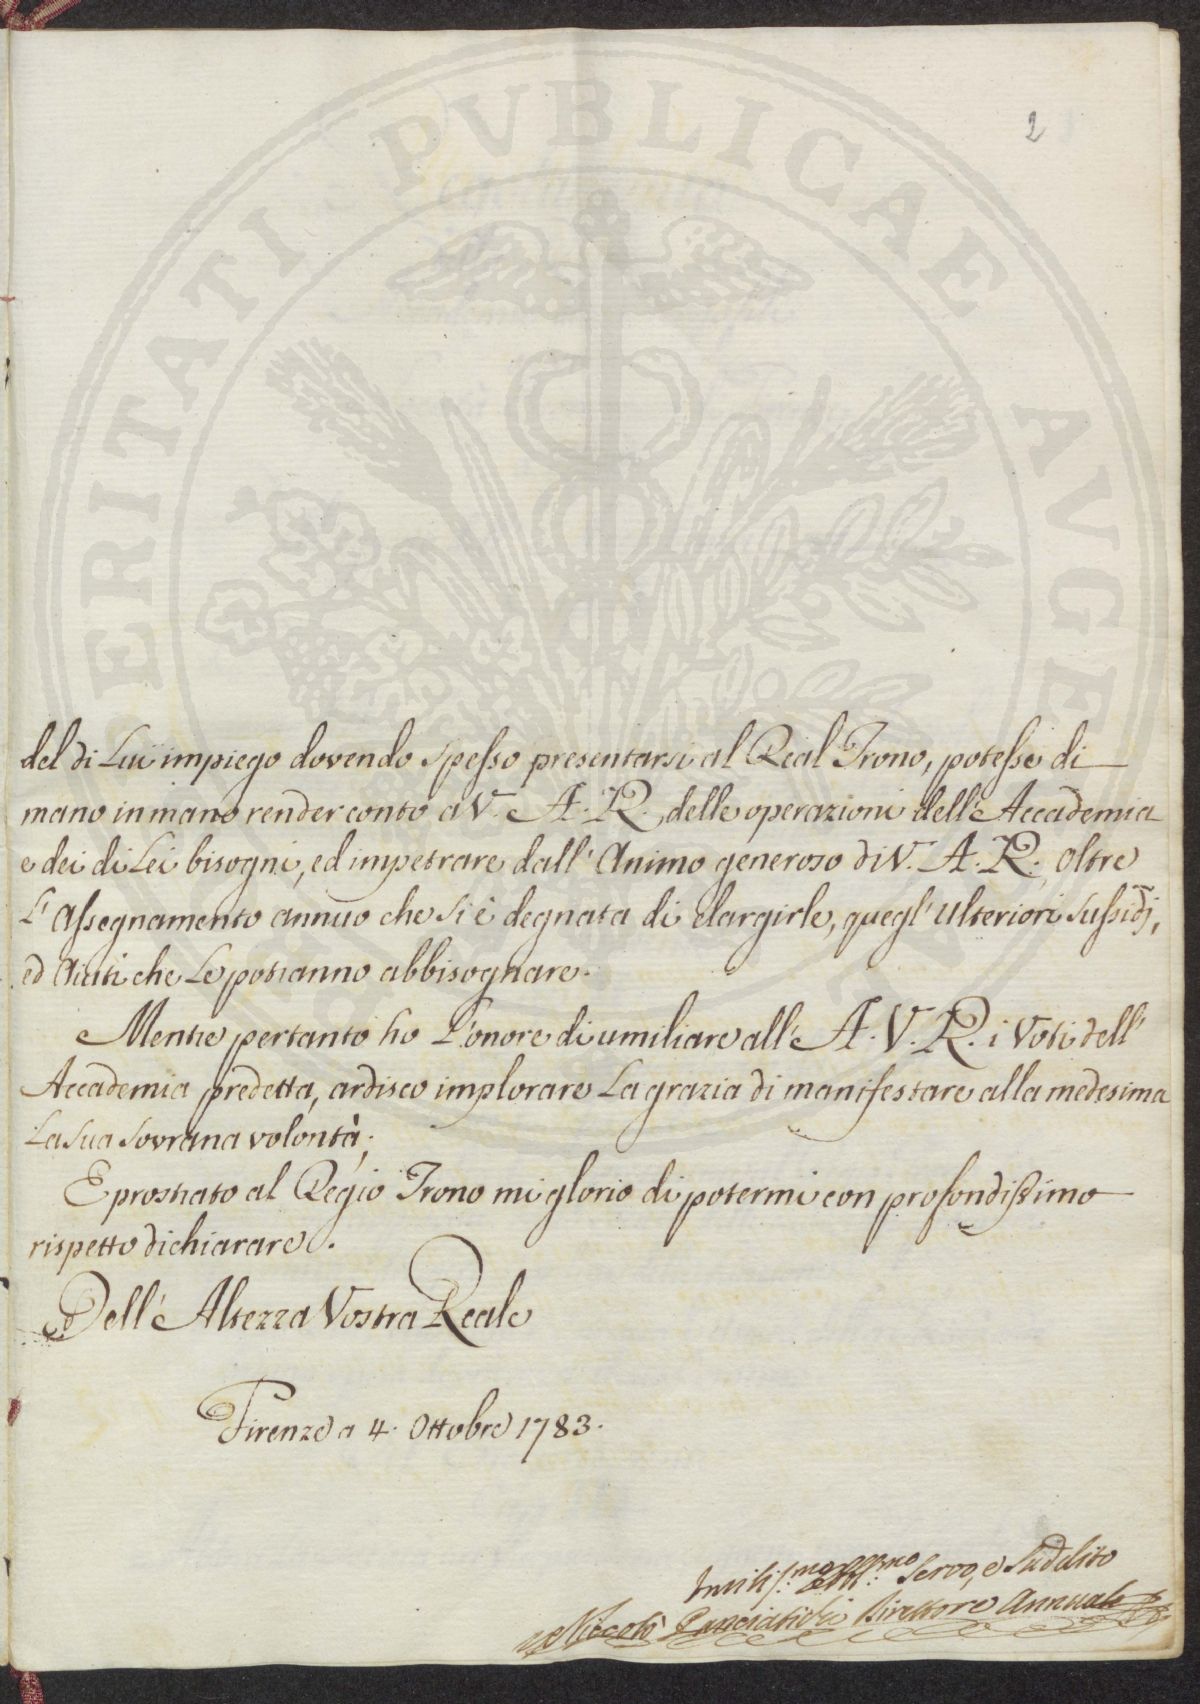 2
PROSPERITATI PVBLICAE AVGENDAE
del di Lui impiego dovendo spesso presentarsi al Real Trono, potesse di
mano in mano render conto a V. A. R. delle operazioni dell'Accademia
e dei di Lei bisogni, ed impetrare dall'Animo generoso di V. A. R. oltre
L'Assegnamento annuo che si è degnata di elargirle, quegl'ulteriori sussidj,
ed Aiuti che Le potranno abbisognare.
Mentre pertanto ho L'onore di umiliare all'A. V. R. i Voti dell'
Accademia predetta, ardisco implorare La grazia di manifestare alla medesima
La sua sovrana volontà;
E prostrato al Regio Trono mi glorio di potermi con profondissimo
rispetto dichiarare.
Dell'Altezza Vostra Reale
Firenze a 4. Ottobre 1783.
Servo, e Suddito
Niccolò Panciatichi Direttore Annuale